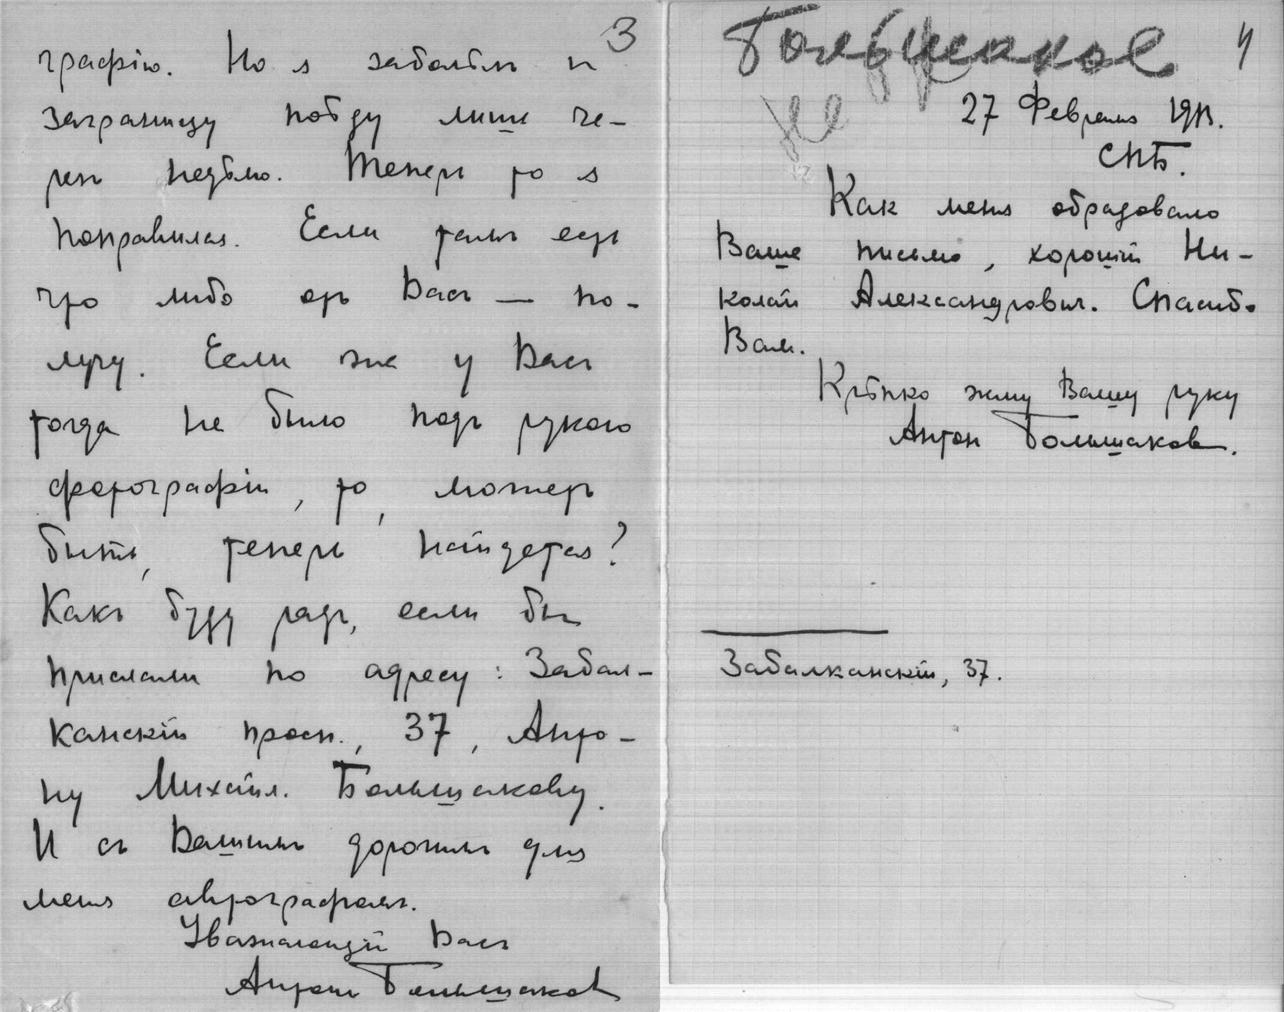 3
графію. Но я заболѣлъ и
заграницу поѣду лишь че-
резъ недѣлю. Теперь то я
поправился. Если тамъ есть
что либо отъ Васъ — по-
лучу. Если же у Васъ
тогда не было подъ рукою
фотографіи, то, можетъ
быть, теперь найдется?
Какъ буду радъ, если бы
прислали по адресу: Забал-
канскій просп., 37, Анто-
ну Михайл. Большакову.
И съ Вашимъ дорогимъ для
меня автографомъ.
Уважающій Васъ
Антонъ Большаковъ
Большаков 4
27 Февраля 1913.
СПБ.
Как меня обрадовало
Ваше письмо, хорошій Ни-
колай Александрович. Спасибо
Вам.
Крѣпко жму Вашу руку
Антон Большаков.
Забалканскій, 37.